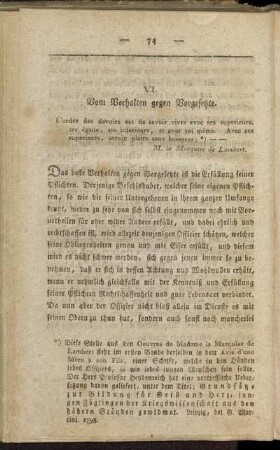 — 74 —
VI.
Vom Verhalten gegen Vorgesetzte.
L'ordre des devoirs est de savoir vivre avec ses superieurs,
ses égaux, ses inferieurs, et avec soi même. Avec ses
superieurs, savoir plaire sans bassesse; *) —
M. la Marquise de Lambert.
Das beste Verhalten gegen Vorgesetzte ist die Erfüllung seiner
Pflichten. Derjenige Befehlshaber, welcher seine eigenen Pflich-
ten, so wie die seiner Untergebenen in ihrem ganzen Umfange
kennt, weder zu sehr von sich selbst eingenommen noch mit Vor-
urtheilen für oder wider Andere erfüllt, und dabei ehrlich und
rechtschaffen ist, wird allezeit denjenigen Officier achten, welcher
seine Obliegenheiten genau und mit Eifer erfüllt, und diesem
wird es nicht schwer werden, sich gegen jenen immer so zu be-
nehmen, daß er sich in dessen Achtung und Wohlwollen erhält,
wenn er ebenfalls mit der Kenntniß und Erfüllung
seiner Pflichten Rechtschaffenheit und gute Lebensart verbindet.
Da nun aber der Offizier nicht bloß allein im Dienste es mit
seinen Obern zu thun hat, sondern auch sonst noch mancherlei
*) Diese Stelle aus den Oeuvres de Madame la Marquise de
Lambert steht im ersten Bande derselben in dem Avis d'une
Mère à son Fils, einer Schrift, welche in den Händen
jedes Offiziers, ja wie jedes jungen Menschen sein sollte.
Der Herr Professor Heydenreich hat eine vortreffliche Ueber-
setzung davon geliefert, unter dem Titel: Grundsätze
zur Bildung für Geist und Herz, jun-
gen Zöglingen der Kriegswissenschaft aus den
höhern Ständen gewidmet. Leipzig, bei G. Mar-
tini. 1798.